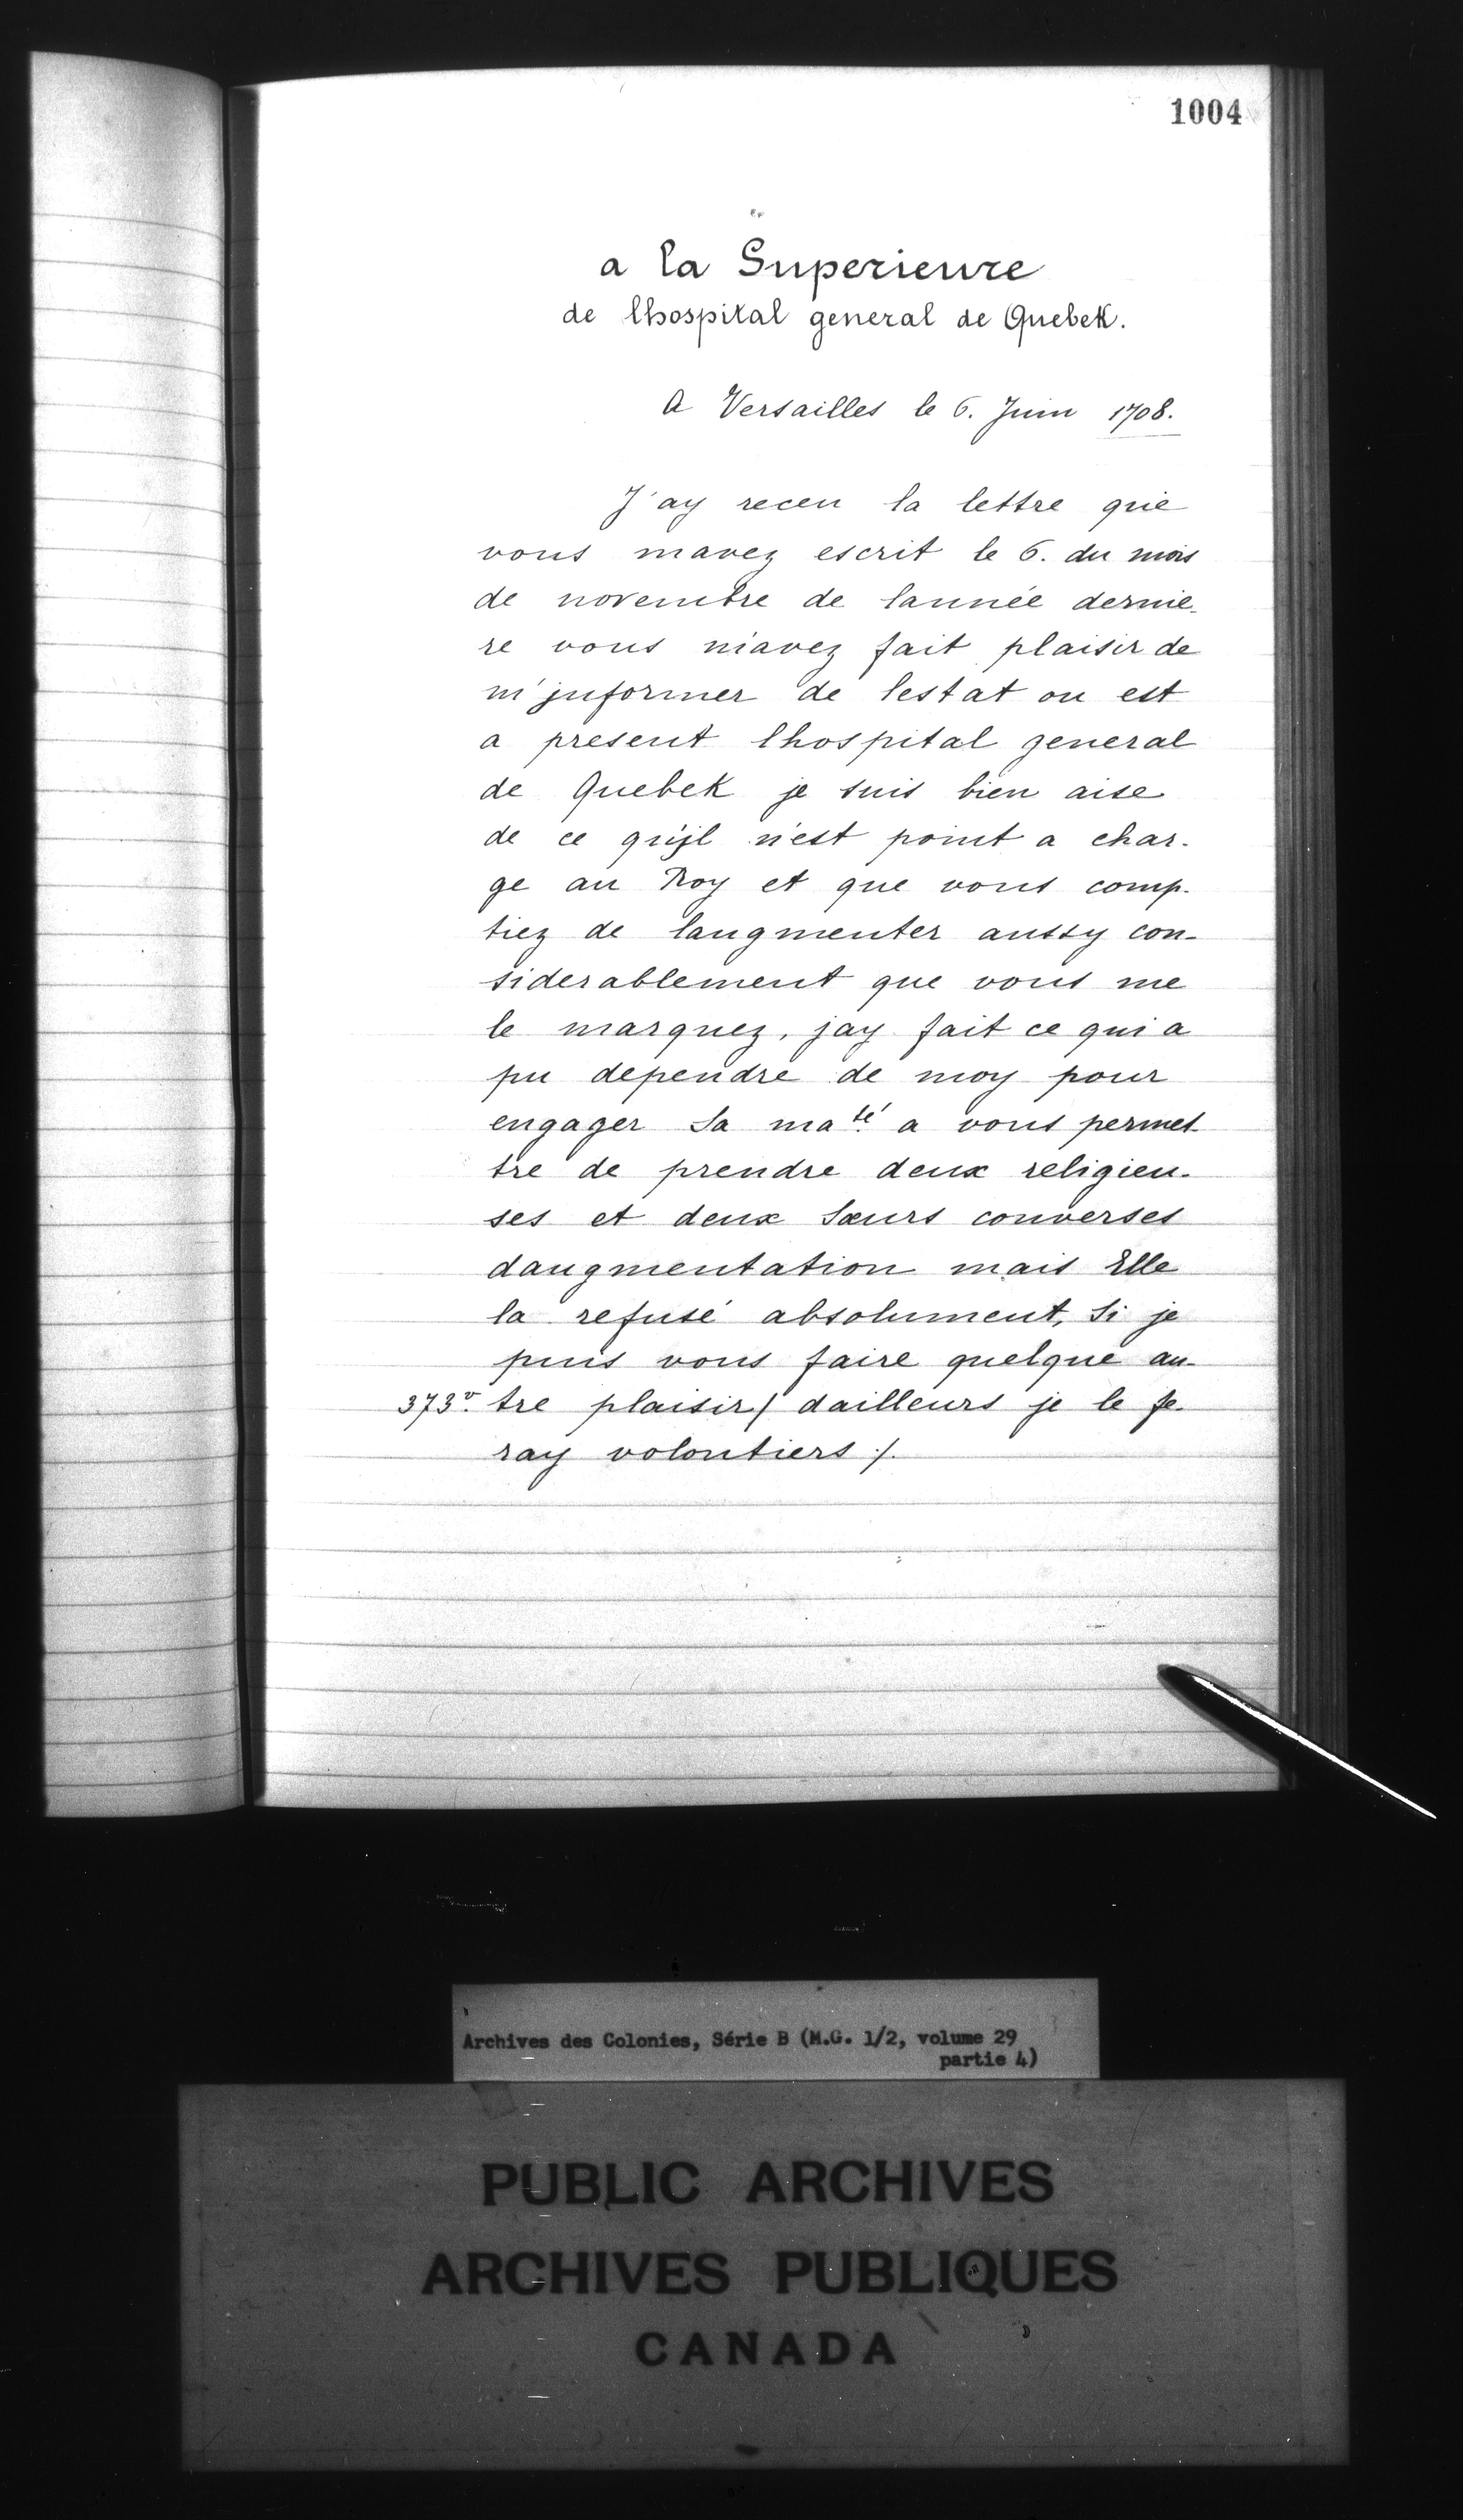 1004
a la Superieure
de lhospital general de Quebek.
A Versailles le 6. Juin 1708.
J'ay receu la lettre que
vous mavez escrit le 6. du mois
de novembre de lannée dernie-
re vous m'avez fait plaisir de
m'jnformer de lestat ou est
a present lhospital general
de Quebek je suis bien aise
de ce qu'jl n'est point a char-
ge au Roy et que vous comp-
tiez de laugmenter aussy con-
siderablement que vous me
le marquez, jay fait ce qui a
pu dependre de moy pour
engager Sa ma.té a vous permet-
tre de prendre deux religieu-
ses et deux Sœurs converses
daugmentation mais Elle
la refusé absolument, Si je
puis vous faire quelque au-
373v. tre plaisir/ dailleurs je le fe-
ray volontiers ./.
Archives des Colonies, Série B (M.G. 1/2, volume 29
partie 4)
PUBLIC ARCHIVES
ARCHIVES PUBLIQUES
CANADA